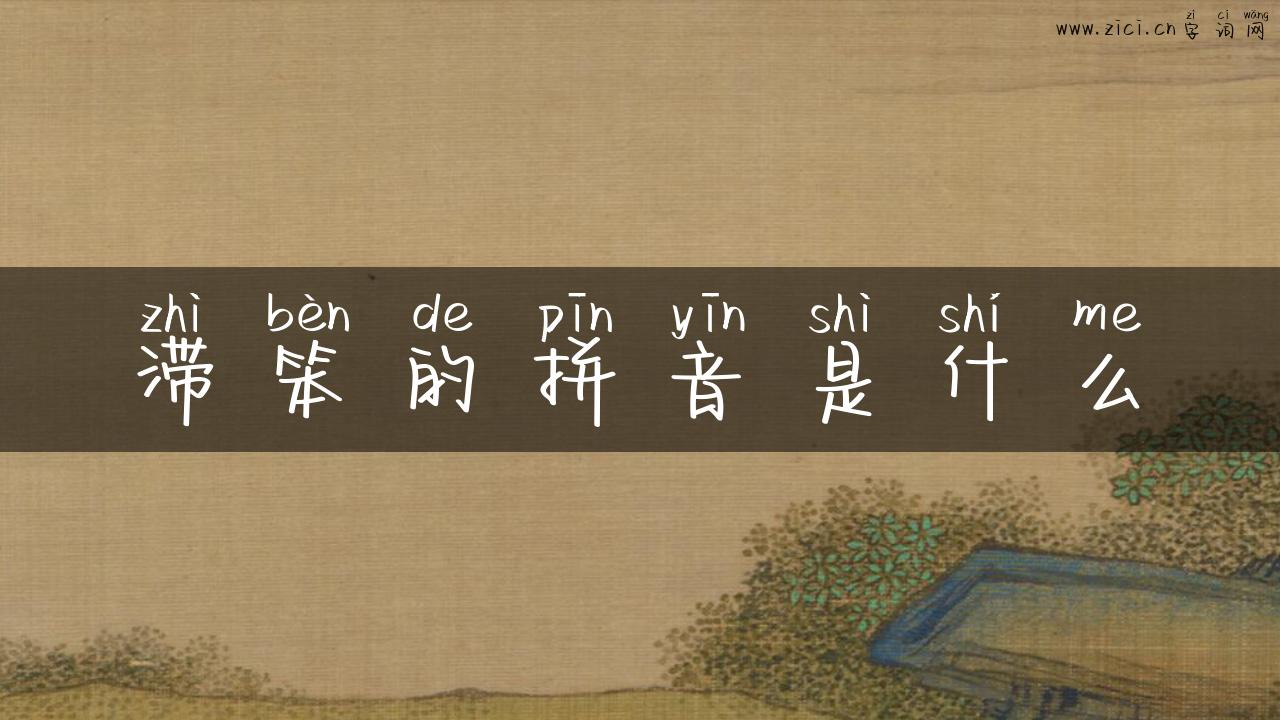 zì cí wǎng
www.zici.cn 字词网
zhì bèn de pīn yīn shì shí me
滞笨的拼音是什么